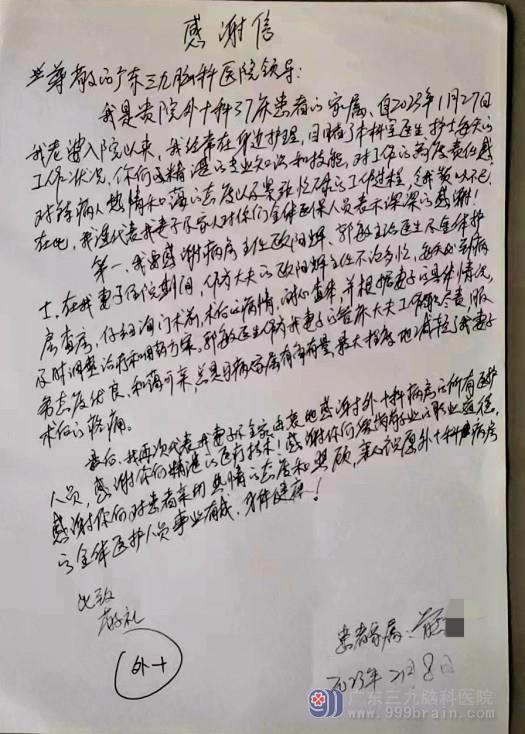 感谢信
尊敬的广东三九脑科医院领导:
我是贵院外十科37床患者的家属、自2023年11月27日
我老婆入院以来,我经常在身边护理,目睹了本科室医生、护士每天的
工作状况,你们以精湛的专业知识和技能,对工作的高度责任感
对待病人热情和蔼的态度以及紧张忙碌的工作过程,令我赞叹不已.
在此,我谨代表我妻子及家人对你们全体医保人员表示深深的感谢!
第一、我要感谢病房主任欧阳辉、郭敏主治医生及全体护
士,在我妻子住院期间,作为大夫的欧阳辉主任不论多忙,每天必到病
房查房,仔细询问术前、术后的病情,耐心查体,并根据妻子的具体情况,
及时调整治疗和用药方案。郭敏医生作为我妻子的管床大夫工作尽职尽责服
务态度优良、和蔼可亲,总是与病人家属有商有量,最大程度地减轻了我妻子
术后的疼痛。
最后、我再次代表我妻子及全家由衷地感谢外十科病房的所有医护
人员,感谢你们精湛的医疗技术!感谢你们的职业道德,
感谢你们对患者亲切热情的态度和照顾,衷心祝愿外十科病房
的全体医护人员事业有成,身体健康!
此致
敬礼
外十
患者家属:
2023年12月8日
广东三九脑科医院
www.999brain.com